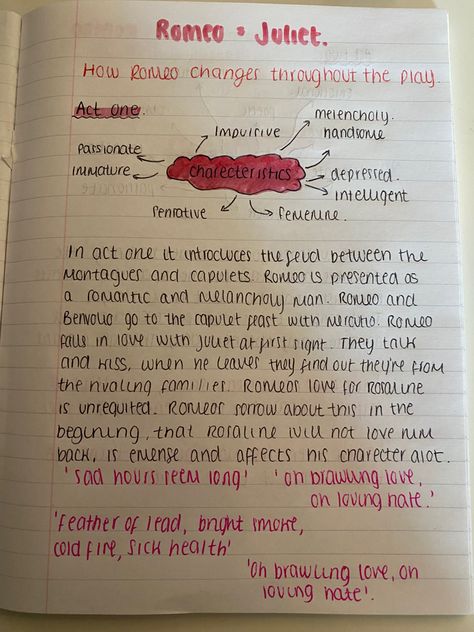 Romeo & Juliet.
How Romeo changes throughout the play.
Act one.
Impulsive
melencholy.
handsome
passionate
immature
charecteristics
depressed.
intelligent
Penrative
femenine.
In act one it introduces the feud between the
Montagues and capulets. Romeo is presented as
a romantic and melancholy man. Romeo and
Benvolio go to the capulet feast with mercutio. Romeo
falls in love with Juliet at first sight. They talk
and kiss, when he leaves they find out they're from
the rivaling families. Romeos love for Rosaline
is unrequited. Romeos sorrow about this in the
begining, that Rosaline will not love him
back, is emense and affects his charecter alot.
'sad hours seem long'
'oh brawling love,
oh loving hate.'
'Feather of lead, bright smoke,
cold fire, sick health'
'oh brawling love, oh
loving hate'.